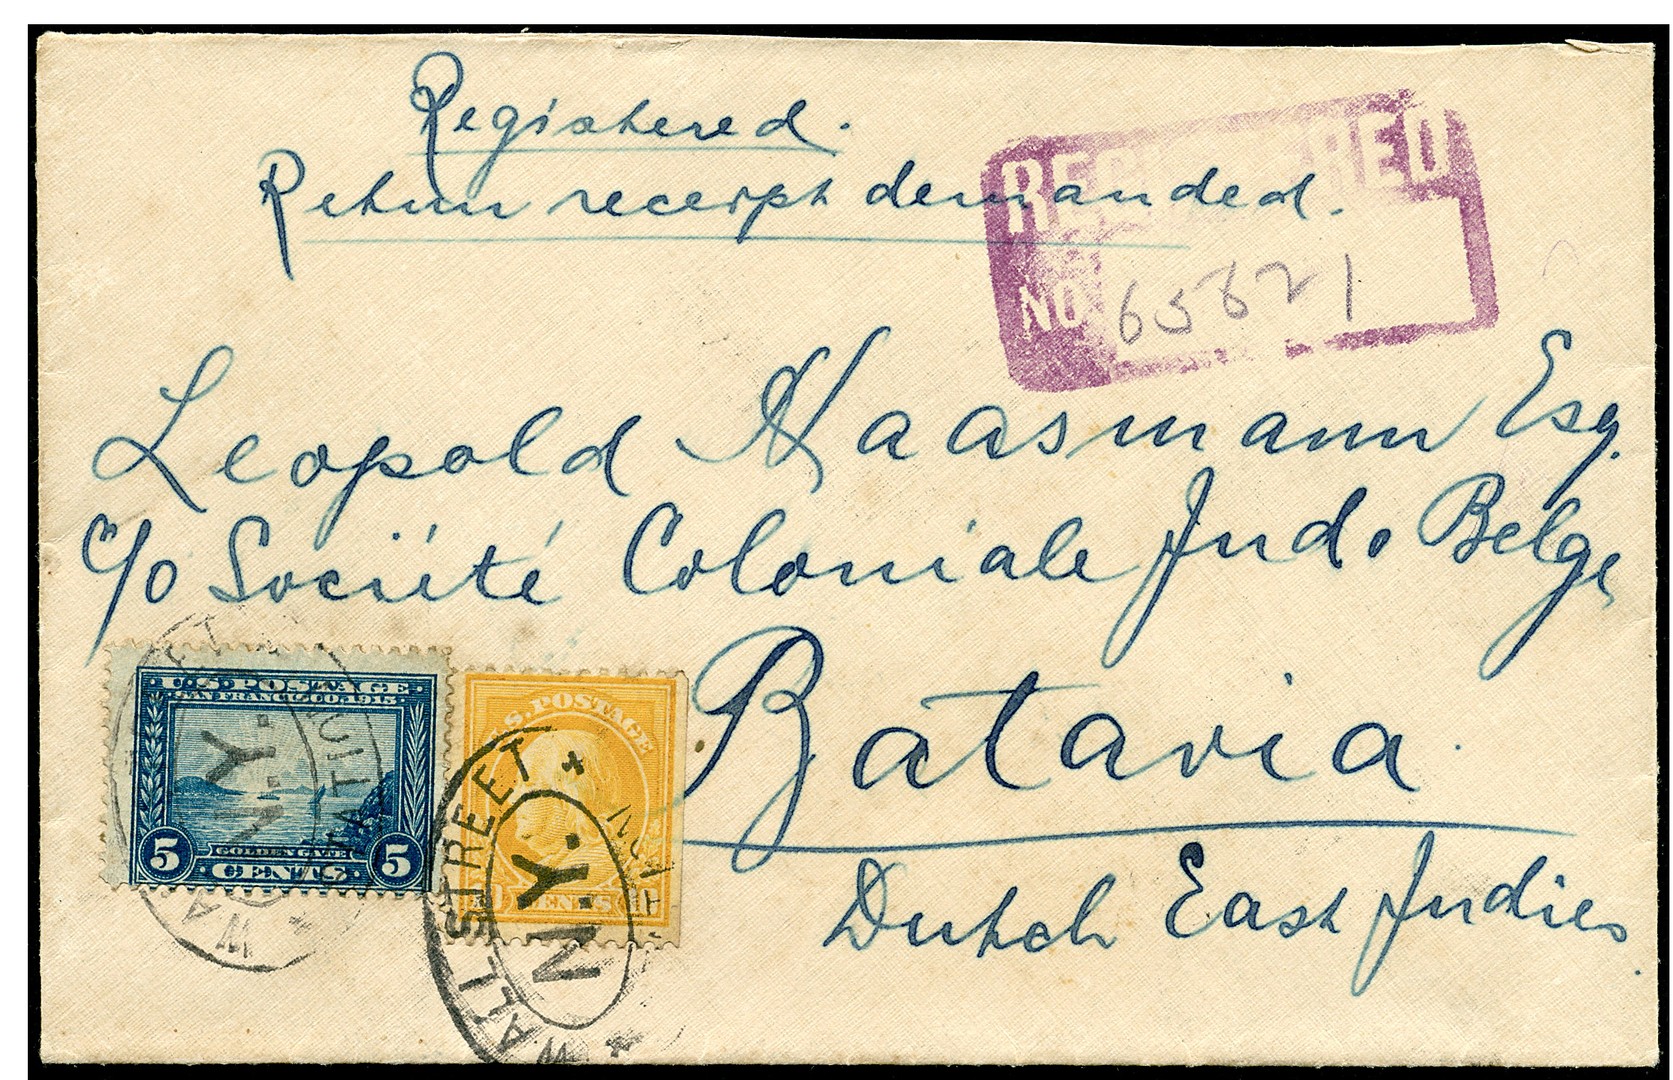 Registered.
Return receipt demanded.
REGISTERED
NO 65621
Leopold Naasmann Esq.
c/o Société Coloniale Indo Belge
Batavia
Dutch East Indies
U.S. POSTAGE
SAN FRANCISCO, 1915
5 5
GOLDEN GATE
CENTS
N.Y.
S. POSTAGE
CENTS
WALL STREET
N.Y.